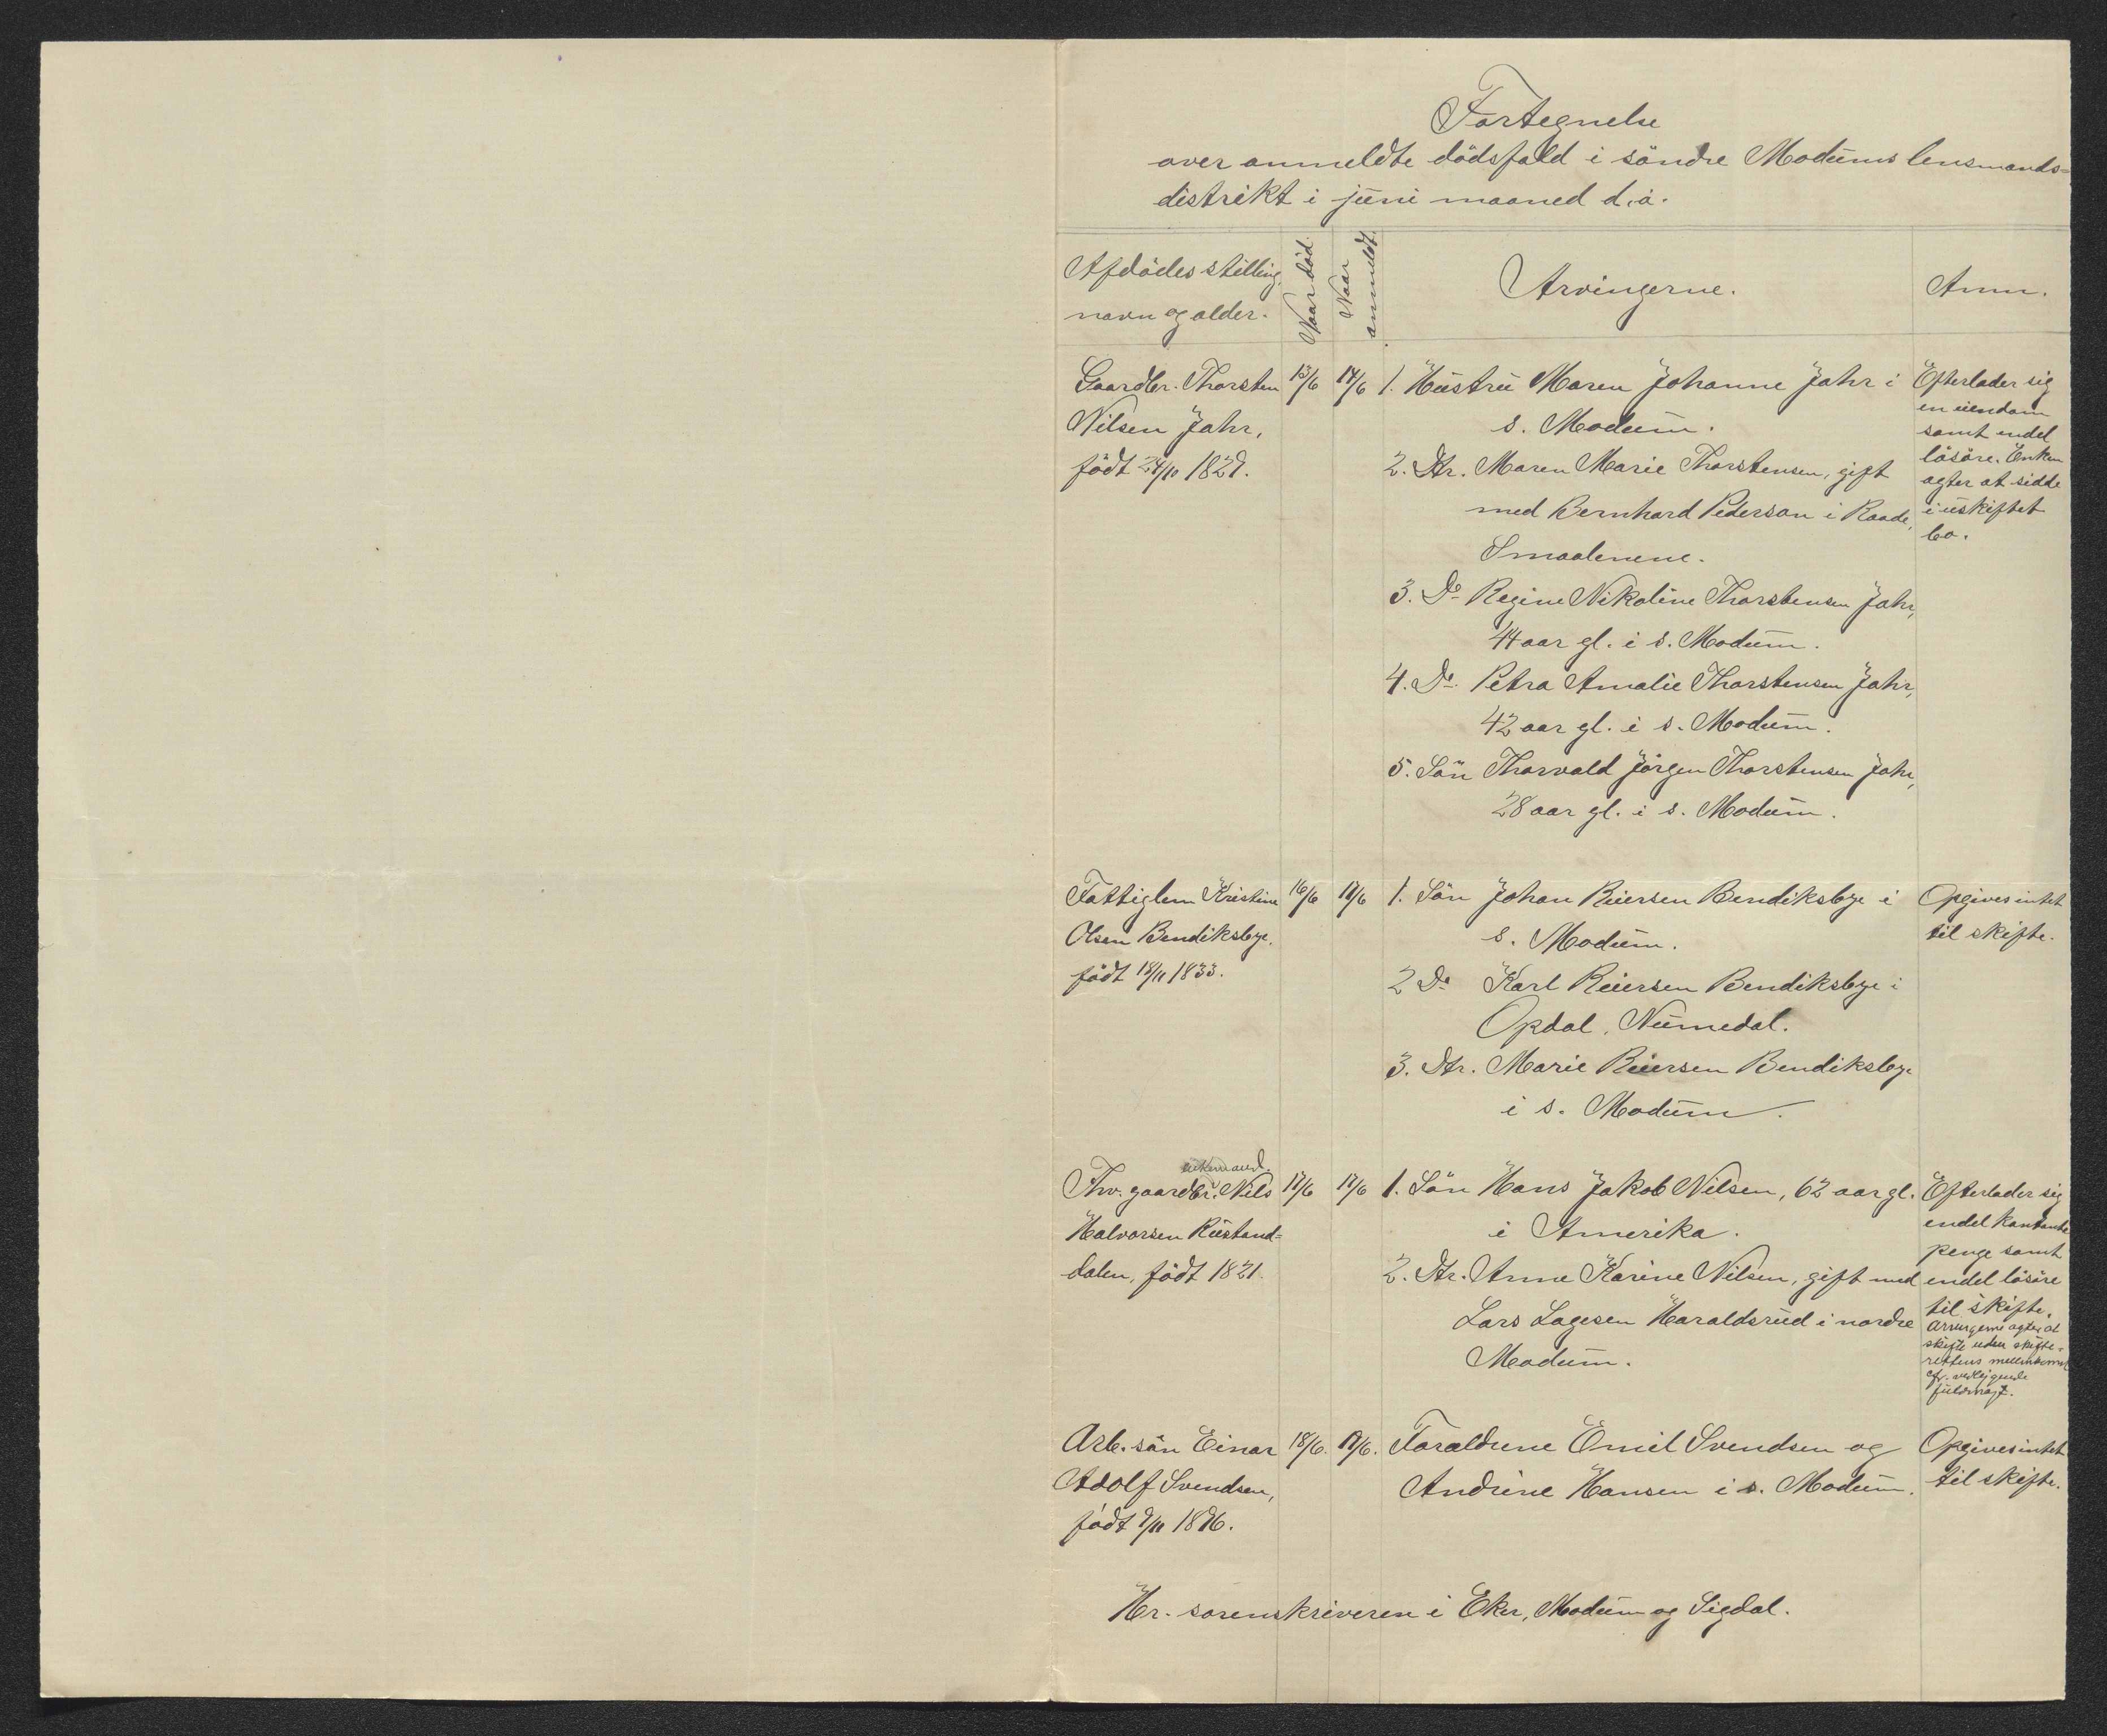 Fortegnelse
over anmeldte dödsfald i söndre Modums lensmands-
distrikt i juni maaned d.å.
Afdödes stilling,
navn og alder.
Naar död.
Naar
anmeldt.
Arvingerne.
Anm.
Gaardbr. Thorsten
Nilsen Jahr,
födt 24/10 1829.
13/6
14/6
1. Hustru Maren Johanne Jahr i
s. Modum.
2. Dtr. Maren Marie Thorstensen, gift
med Bernhard Pederson i Raade,
Smaalenene.
3. Do Regine Nikoline Thorstensen Jahr,
44 aar gl. i s. Modum.
4. Do Petra Amalie Thorstensen Jahr,
42 aar gl. i s. Modum.
5. Sön Thorvald Jörgen Thorstensen Jahr,
28 aar gl. i s. Modum.
Efterlader sig
en eiendom
samt endel
lösöre. Enken
agter at sidde
i uskiftet
bo.
Fattiglem Kristine
Olsen Bendiksbye,
födt 18/11 1833.
16/6
17/6
1. Sön Johan Reiersen Bendiksbye i
s. Modum.
2 Do Karl Reiersen Bendiksbye i
Opdal, Numedal.
3. Dtr. Marie Reiersen Bendiksbye
i s. Modum.
Opgives intet
til skifte.
enkemand.
Fhv. gaardbr. Nils
Halvorsen Rustand-
dalen, födt 1821.
17/6
17/6
1. Sön Hans Jakob Nilsen, 62 aar gl.
i Amerika.
2. Dtr. Anne Karine Nilsen, gift med
Lars Lagesen Haraldsrud i nordre
Modum.
Efterlader sig
endel kontante
penge samt
endel lösöre
til skifte.
Arvingerne agter at
skifte uden skifte-
rettens mellemkomst
cfr. vedliggende
fuldmagt.
Arb. sön Einar
Adolf Svendsen,
födt 9/11 1896.
18/6.
19/6.
Foraldrene Emil Svendsen og
Andrine Hansen i s. Modum.
Opgives intet
til skifte.
Hr. sorenskriveren i Eker, Modum og Sigdal.